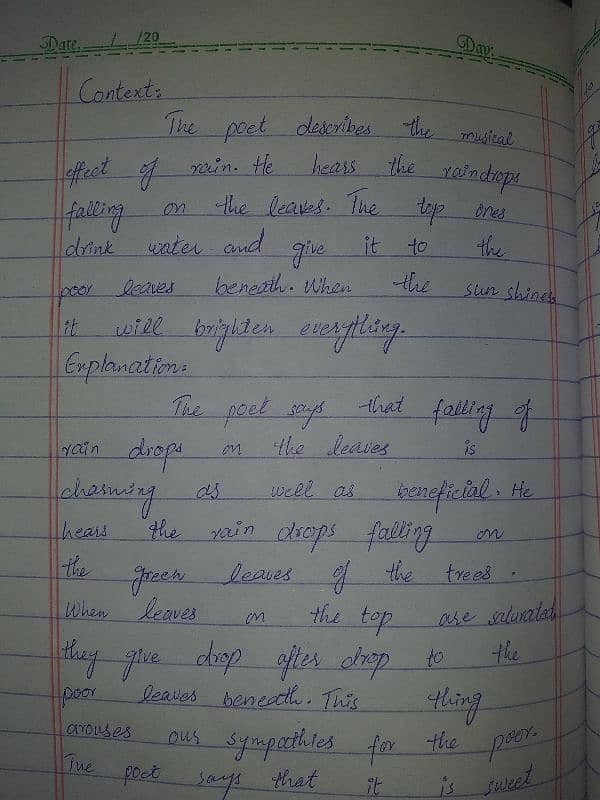 Date. / /20 Day:
Context:
The poet describes the musical
effect of rain. He hears the raindrops
falling on the leaves. The top ones
drink water and give it to the
poor leaves beneath. When the sun shines
it will brighten everything.
Explanation:
The poet says that falling of
rain drops on the leaves is
charming as well as beneficial. He
hears the rain drops falling on
the green leaves of the trees.
When leaves on the top are saturated
they give drop after drop to the
poor leaves beneath. This thing
arouses our sympathies for the poor.
The poet says that it is sweet